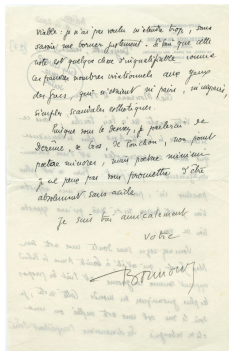 vieille : je n'ai pas voulu m'étendre trop, sans
savoir me borner justement. Si bien que cette
note est quelque chose d'inqualifiable, comme
les nombres irrationnels aux yeux
des grecs, qui n'étaient ni pairs, ni impairs,
simples scandales esthétiques.
Puisque vous le , je parlerai de
Derême, de , de , non point
poetae minores, mais poetae
je ne peux pas vous promettre d'être
absolument sans acide.
Je suis bien amicalement
votre